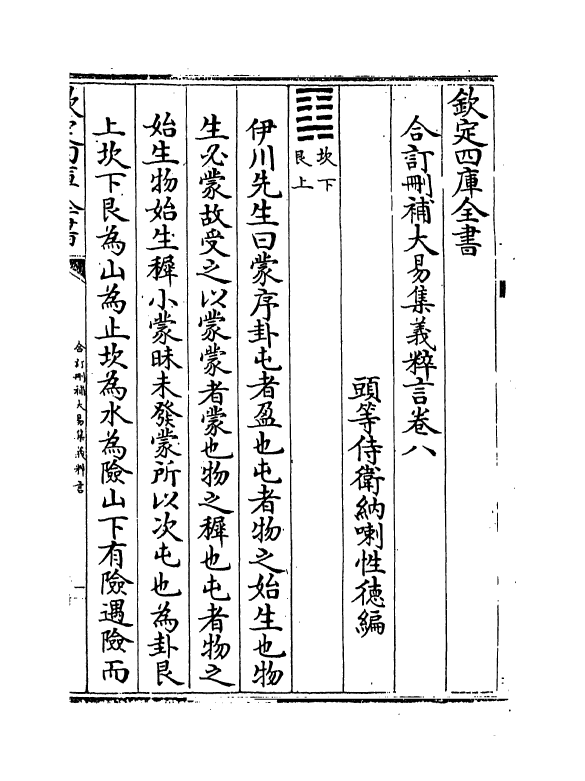 欽定四庫全書
合訂刪補大易集義粹言卷八
頭等侍衛納喇性徳編
坎下
艮上
伊川先生曰蒙序卦屯者盈也屯者物之始生也物
生必蒙故受之以蒙蒙者蒙也物之穉也屯者物之
始生物始生穉小蒙昧未發蒙所以次屯也為卦艮
上坎下艮為山為止坎為水為險山下有險遇險而
合訂刪補大易集義粹言
一